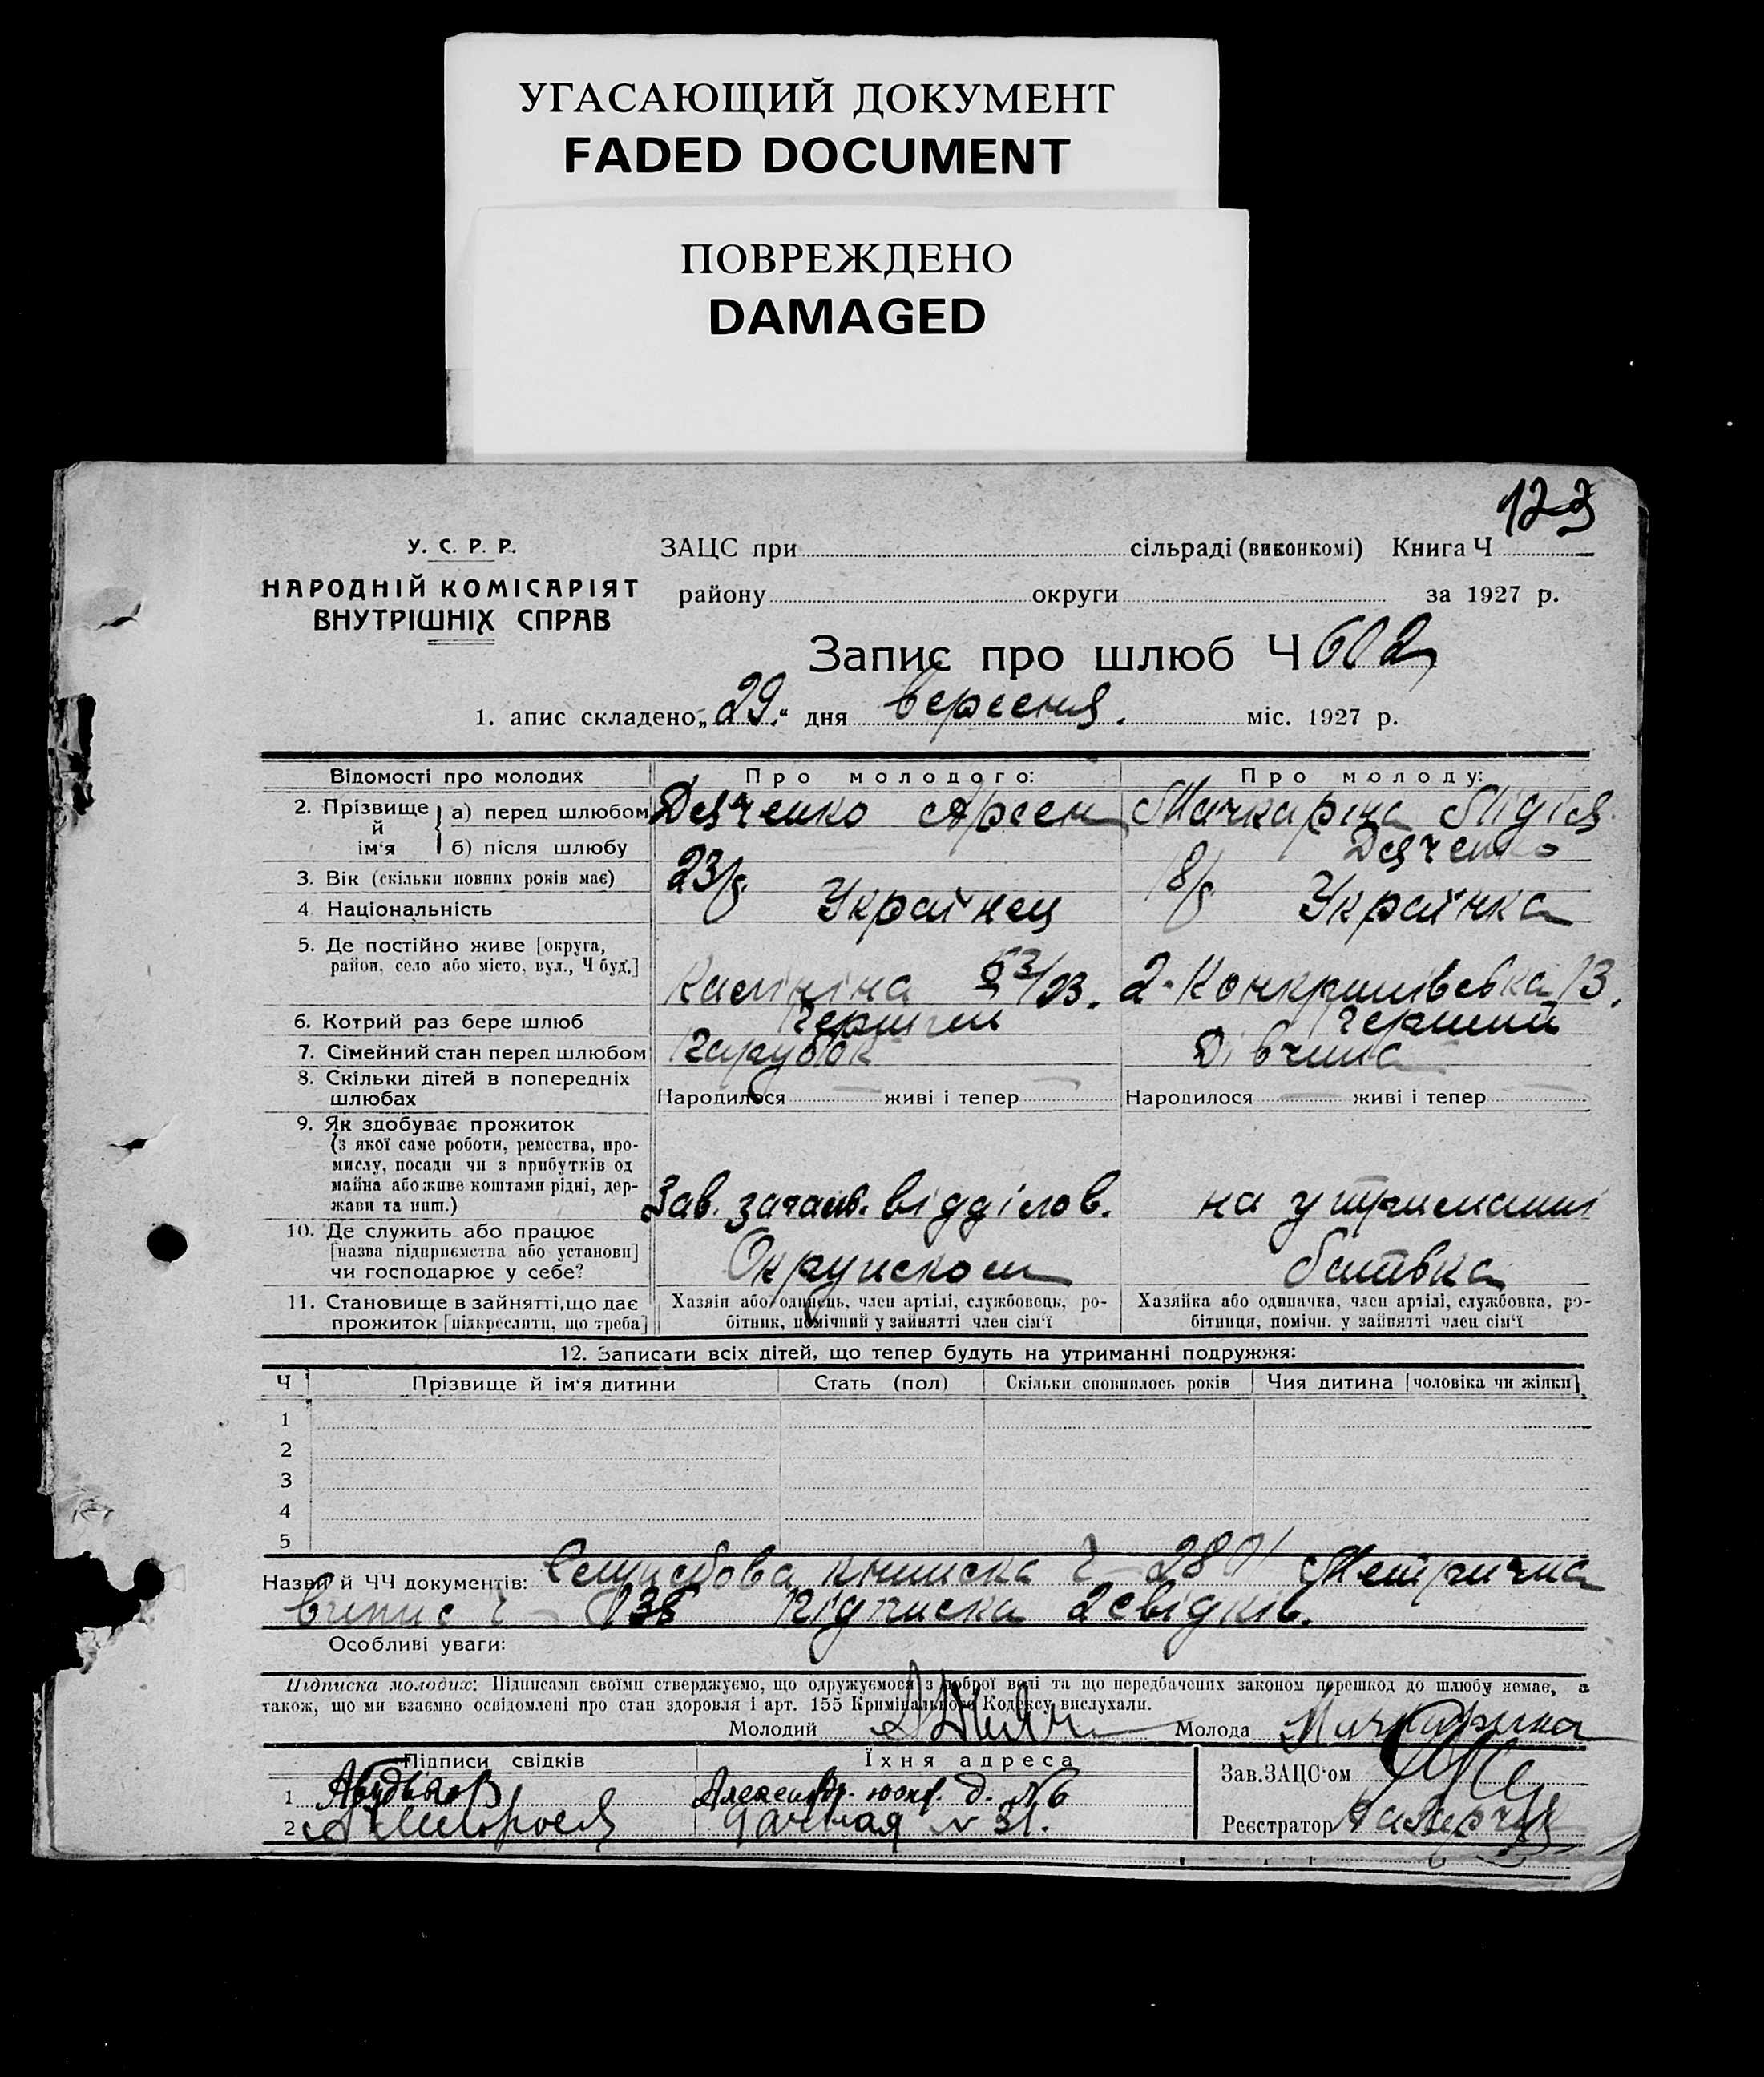 УГАСАЮЩИЙ ДОКУМЕНТ
FADED DOCUMENT
ПОВРЕЖДЕНО
DAMAGED
123
У. С. Р. Р.
НАРОДНІЙ КОМІСАРІЯТ
ВНУТРІШНІХ СПРАВ
ЗАЦС при сільраді (виконкомі) Книга Ч
району округи за 1927 р.
Запис про шлюб Ч 602
1. апис складено „29.“ дня вересня. міс. 1927 р.
Відомості про молодих
Про молодого:
Про молоду:
2. Прізвище й ім‘я
а) перед шлюбом
Дяченко Арсен
Мачкаріна Лідія
б) після шлюбу
Дяченко
3. Вік (скільки повних років має)
23/р.
18/р.
4 Національність
Українец
Українка
5. Де постійно живе [округа,
район, село або місто, вул., Ч буд.]
Калініна /23.
2-
13.
6. Котрий раз бере шлюб
Перший
Перший
7. Сімейний стан перед шлюбом
Парубок
Дівчина
8. Скільки дітей в попередніх
шлюбах
Народилося живі і тепер
Народилося живі і тепер
9. Як здобуває прожиток
(з якої саме роботи, ремества, про-
мислу, посади чи з прибутків од
майна або живе коштами рідні, дер-
жави та инш.)
Зав. загальн. відділов.
на утриманні
10. Де служить або працює
[назва підприємства або установи]
чи господарює у себе?
Окружком
батька
11. Становище в зайнятті, що дає
прожиток [підкреслити, що треба]
Хазяїн або одинець, член артілі, службовець, ро-
бітник, помічний у зайнятті член сім‘ї
Хазяйка або одиначка, член артілі, службовка, ро-
бітниця, помічн. у зайнятті член сім‘ї
12. Записати всіх дітей, що тепер будуть на утриманні подружжя:
Ч Прізвище й ім‘я дитини Стать (пол) Скільки сповнилось років Чия дитина [чоловіка чи жінки]
1
2
3
4
5
Назви й ЧЧ документів: Службова книжка Ч 2801 Метрична
випис Ч 138 Підписка 2 свідків.
Особливі уваги:
Підписка молодих: Підписами своїми стверджуємо, що одружуємося з доброї волі та що передбачених законом перешкод до шлюбу немає, а
також, що ми взаємно освідомлені про стан здоровля і арт. 155 Кримінального Кодексу вислухали.
Молодий
Молода Мачкарина
Підписи свідків
Їхня адреса
Зав. ЗАЦС‘ом
1 Александр. д. №6
2 Дачная № 31.
Реєстратор